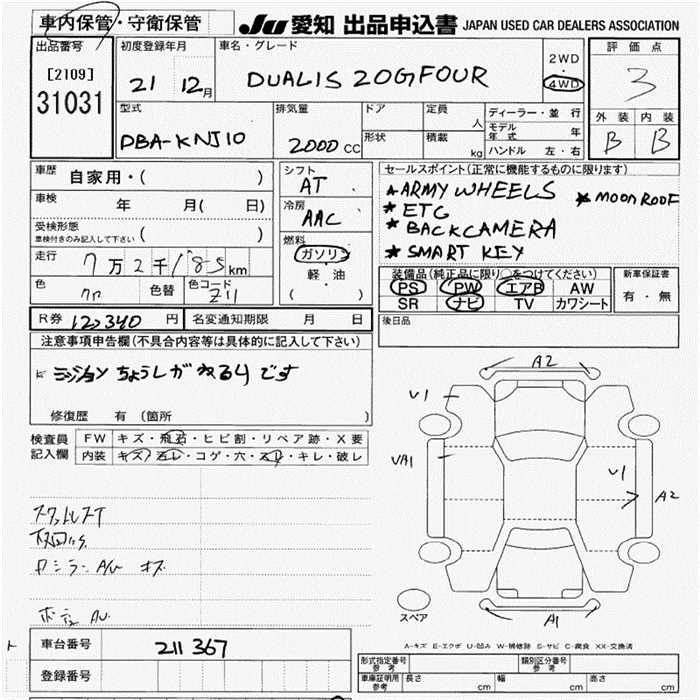 車内保管・守衛保管
JU 愛知 出品申込書 JAPAN USED CAR DEALERS ASSOCIATION
出品番号
[2109]
31031
初度登録年月
21 12月
車名・グレード
DUALIS 20GFOUR
2WD
・
4WD
評価点
3
外装 内装
B B
型式
DBA-KNJ10
排気量
2000 CC
ドア
形状
定員
人
積載
kg
ディーラー・並行
モデル年式 年
ハンドル 左・右
車歴
自家用・( )
車検 年 月( 日)
受検形態
車検付きのみ記入して下さい ( )
走行 7万2千185km
色 色替 色コード
Z11
シフト
AT
冷房
AAC
燃料
ガソリン
軽・油
( )
セールスポイント(正常に機能するものに限ります)
★ARMY WHEELS ★MOONROOF
★ETC
★BACKCAMERA
★SMART KEY
装備品(純正品に限り○をつけてください)
PS PW エアB AW
SR ナビ TV カワシート
新車保証書
有・無
R券 12340 円 名変通知期限 月 日
後日品
注意事項申告欄(不具合内容等は具体的に記入して下さい)
ミッションちょうしがわるいです
修復歴 有 (箇所 )
検査員
記入欄
FW キズ・飛石・ヒビ割・リペア跡・X要
内装 キズ・ヨレ・コゲ・穴・スレ・キレ・破レ
A2
U1
UA1
U1
A2
A1
スペア
A-キズ E-エクボ U-凹み W-補修跡 S-サビ C-腐食 XX-交換済
車台番号 211367
登録番号
形式指定番号
参考
類別区分番号
参考
車庫証明用
参考
長さ cm 幅 cm 高さ cm